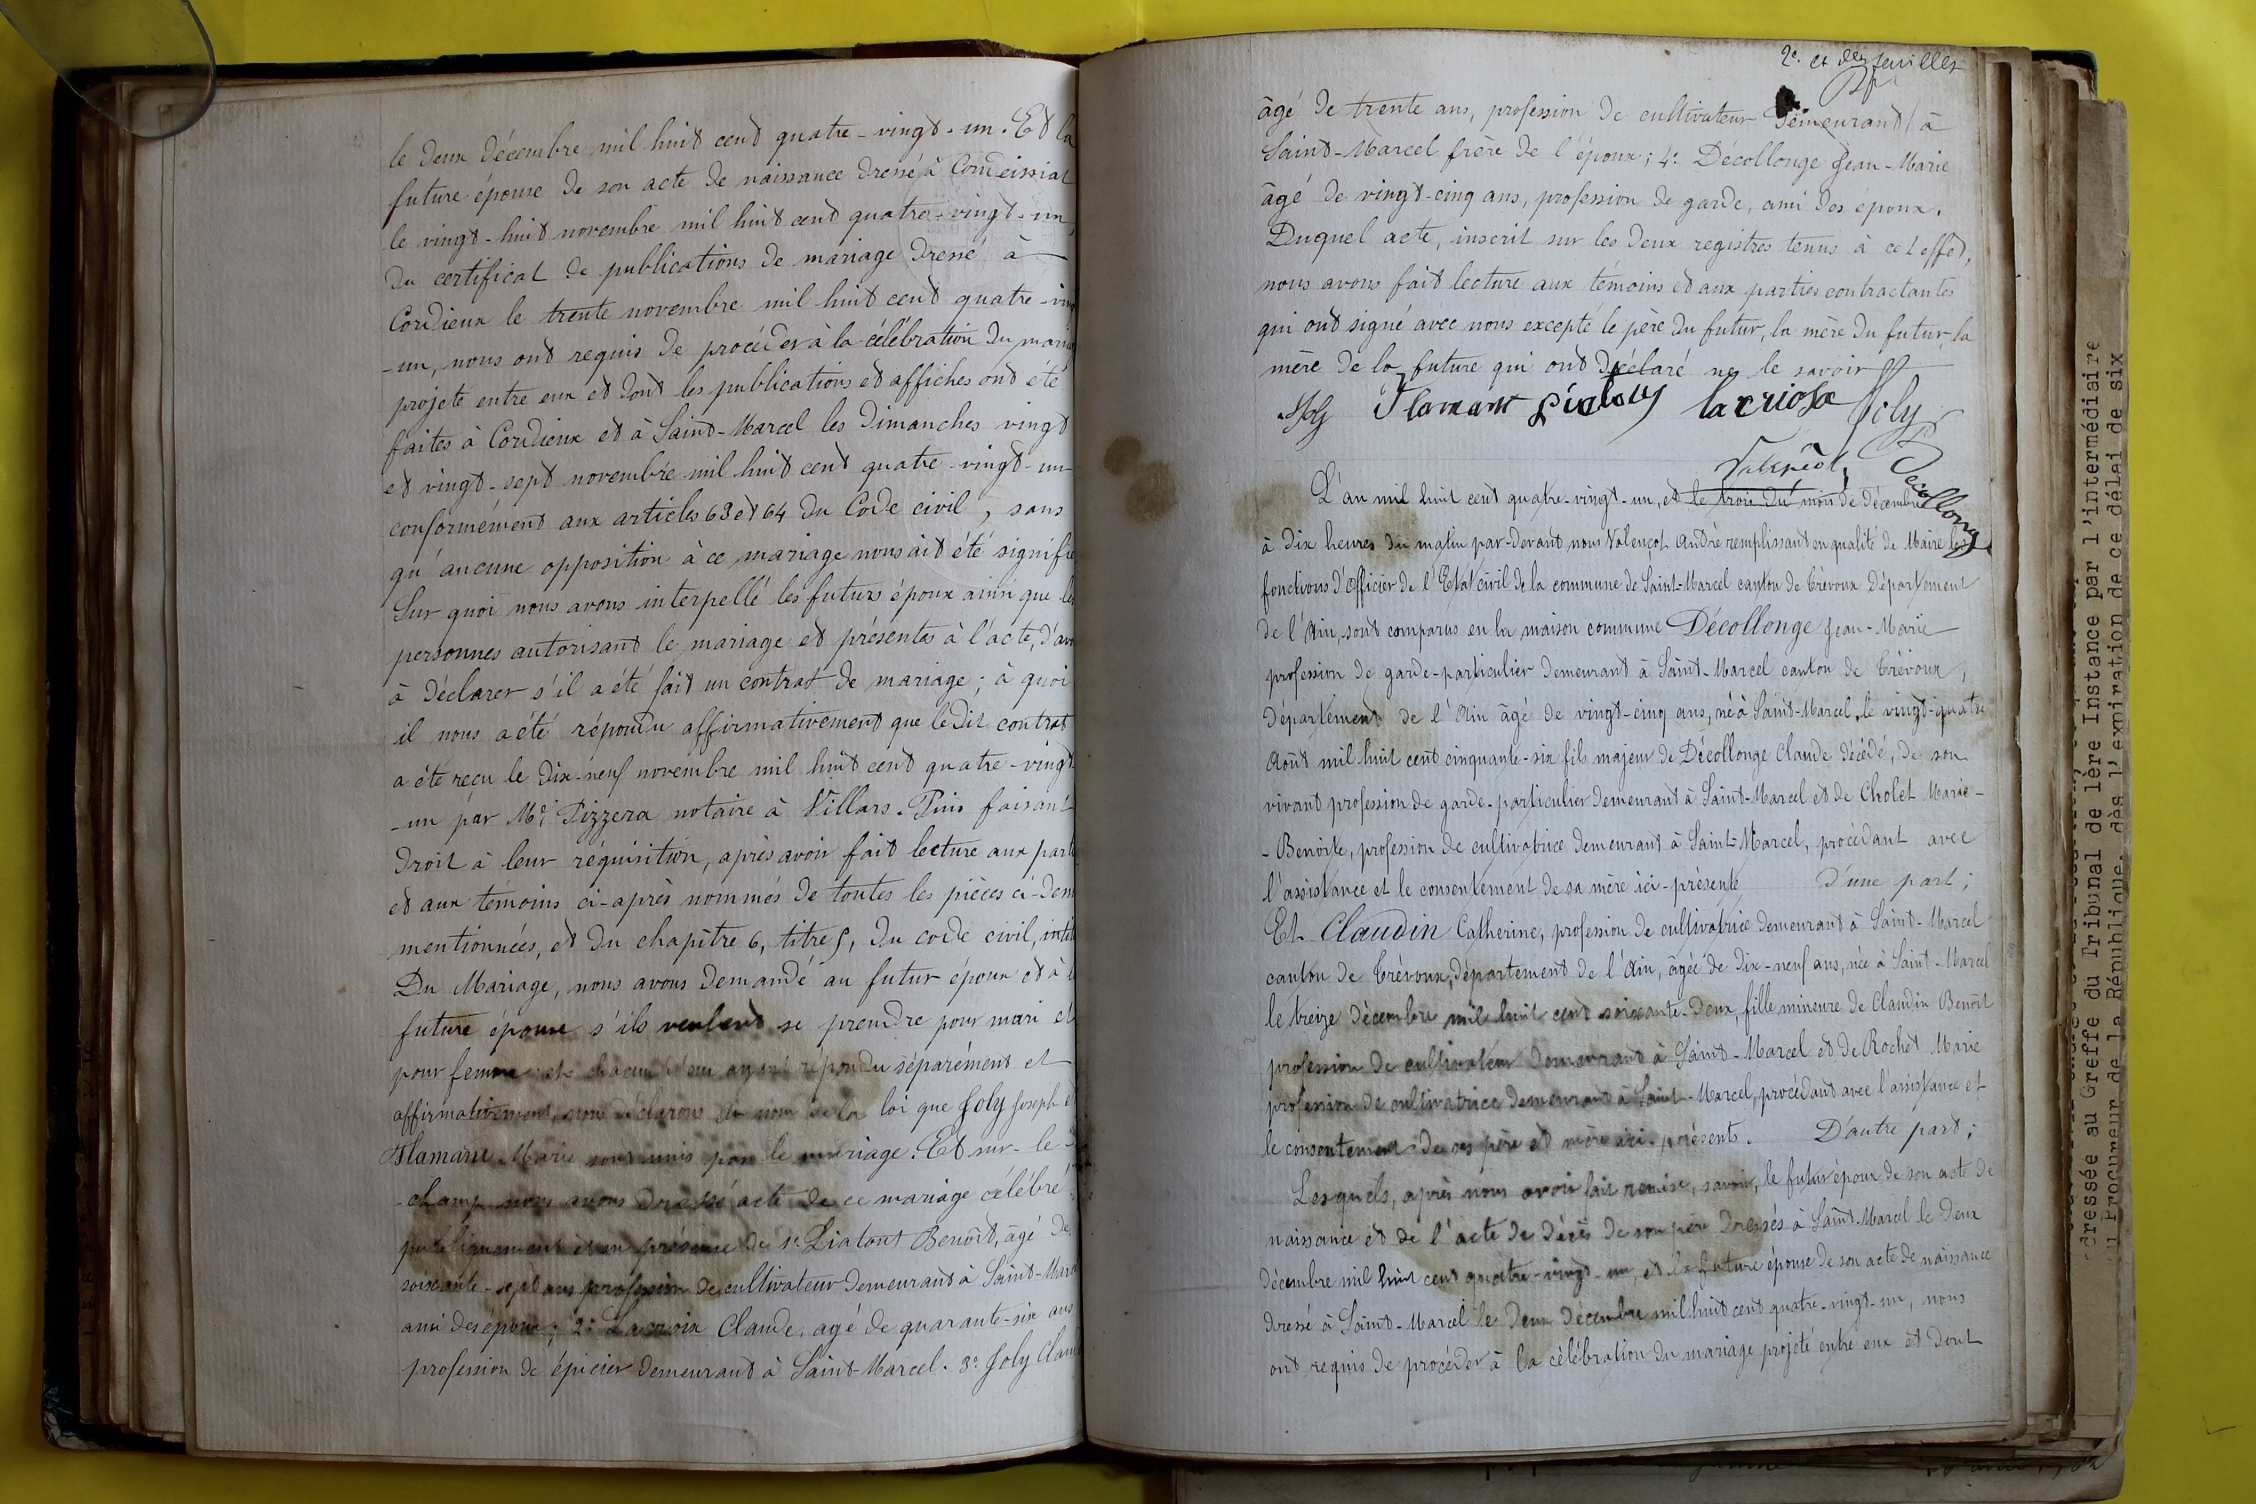 le deux décembre mil huit cent quatre-vingt-un. Et la
future épouse de son acte de naissance dressé à Condeissiat
le vingt-huit novembre mil huit cent quatre-vingt-un,
du certificat de publications de mariage dressé à
Cordieux le trente novembre mil huit cent quatre-vingt
-un, nous ont requis de procéder à la célébration du maria
projeté entre eux et dont les publications et affiches ont été
faites à Cordieux et à Saint-Marcel les dimanches vingt
et vingt-sept novembre mil huit cent quatre-vingt-un
conformément aux articles 63 et 64 du Code civil, sans
qu'aucune opposition à ce mariage nous ait été signifiée
Sur quoi nous avons interpellé les futurs époux ainsi que les
personnes autorisant le mariage et présentes à l'acte, d'avoir
à déclarer s'il a été fait un contrat de mariage; à quoi
il nous a été répondu affirmativement que ledit contrat
a été reçu le dix-neuf novembre mil huit cent quatre-vingt
-un par Me Pizzera notaire à Villars. Puis faisant
droit à leur réquisition, après avoir fait lecture aux parti
et aux témoins ci-après nommés de toutes les pièces ci-dess
mentionnées, et du chapître 6, titre 5, du code civil, intit
Du Mariage, nous avons demandé au futur époux et à l
future épouse s'ils veulent se prendre pour mari et
pour femme et chacun d'eux ayant répondu séparément et
affirmativement, nous déclarons au nom de la loi que Joly Joseph et
Flamand Marie sont unis par le mariage. Et sur-le-
-champ nous avons dressé acte de ce mariage célébré
publiquement et en présence de 1º Liatout Benoît, âgé de
soixante-sept ans profession de cultivateur demeurant à Saint-Marcel
ami des époux; 2º Lacroix Claude, agé de quarante-six ans
profession de épicier demeurant à Saint-Marcel. 3º Joly Claude
2e et der feuillet
âgé de trente ans, profession de cultivateur demeurant à
Saint-Marcel frère de l'époux; 4º Décollonge Jean-Marie
âgé de vingt-cinq ans, profession de garde, ami des époux.
Duquel acte, inscrit sur les deux registres tenus à cet effet,
nous avons fait lecture aux témoins et aux parties contractantes
qui ont signé avec nous excepté le père du futur, la mère du futur, la
mère de la future qui ont déclaré ne le savoir
Joly Flamant Liatout lacroix Joly
Valençot Décollonge
L'an mil huit cent quatre-vingt-un, et le trois du mois de décembre
à dix heures du matin par-devant nous Valençot André remplissant en qualité de Maire les
fonctions d'Officier de l'Etat civil de la commune de Saint-Marcel canton de Trévoux département
de l'Ain, sont comparus en la maison commune Décollonge Jean-Marie
profession de garde-particulier demeurant à Saint-Marcel canton de Trévoux,
département de l'Ain âgé de vingt-cinq ans, né à Saint-Marcel, le vingt-quatre
Août mil huit cent cinquante-six fils majeur de Décollonge Claude décédé, de son
vivant profession de garde-particulier demeurant à Saint-Marcel et de Cholet Marie-
-Benoîte, profession de cultivatrice demeurant à Saint-Marcel, procédant avec
l'assistance et le consentement de sa mère ici-présente d'une part;
Et Claudin Catherine, profession de cultivatrice demeurant à Saint-Marcel
canton de Trévoux, département de l'Ain, âgée de dix-neuf ans, née à Saint-Marcel
le treize décembre mil huit cent soixante-deux, fille mineure de Claudin Benoît
profession de cultivateur demeurant à Saint-Marcel et de Rochet Marie
profession de cultivatrice demeurant à Saint-Marcel, procédant avec l'assistance et
le consentement de ses père et mère ici-présents. D'autre part;
Lesquels, après nous avoir fait remise, savoir, le futur époux de son acte de
naissance et de l'acte de décès de son père dressés à Saint-Marcel le deux
décembre mil huit cent quatre-vingt-un, et la future épouse de son acte de naissance
dressé à Saint-Marcel le deux décembre mil huit cent quatre-vingt-un, nous
ont requis de procéder à la célébration du mariage projeté entre eux et dont
dressée au Greffe du Tribunal de 1ère Instance par l'intermédiaire
du Procureur de la République, dès l'expiration de ce délai de six